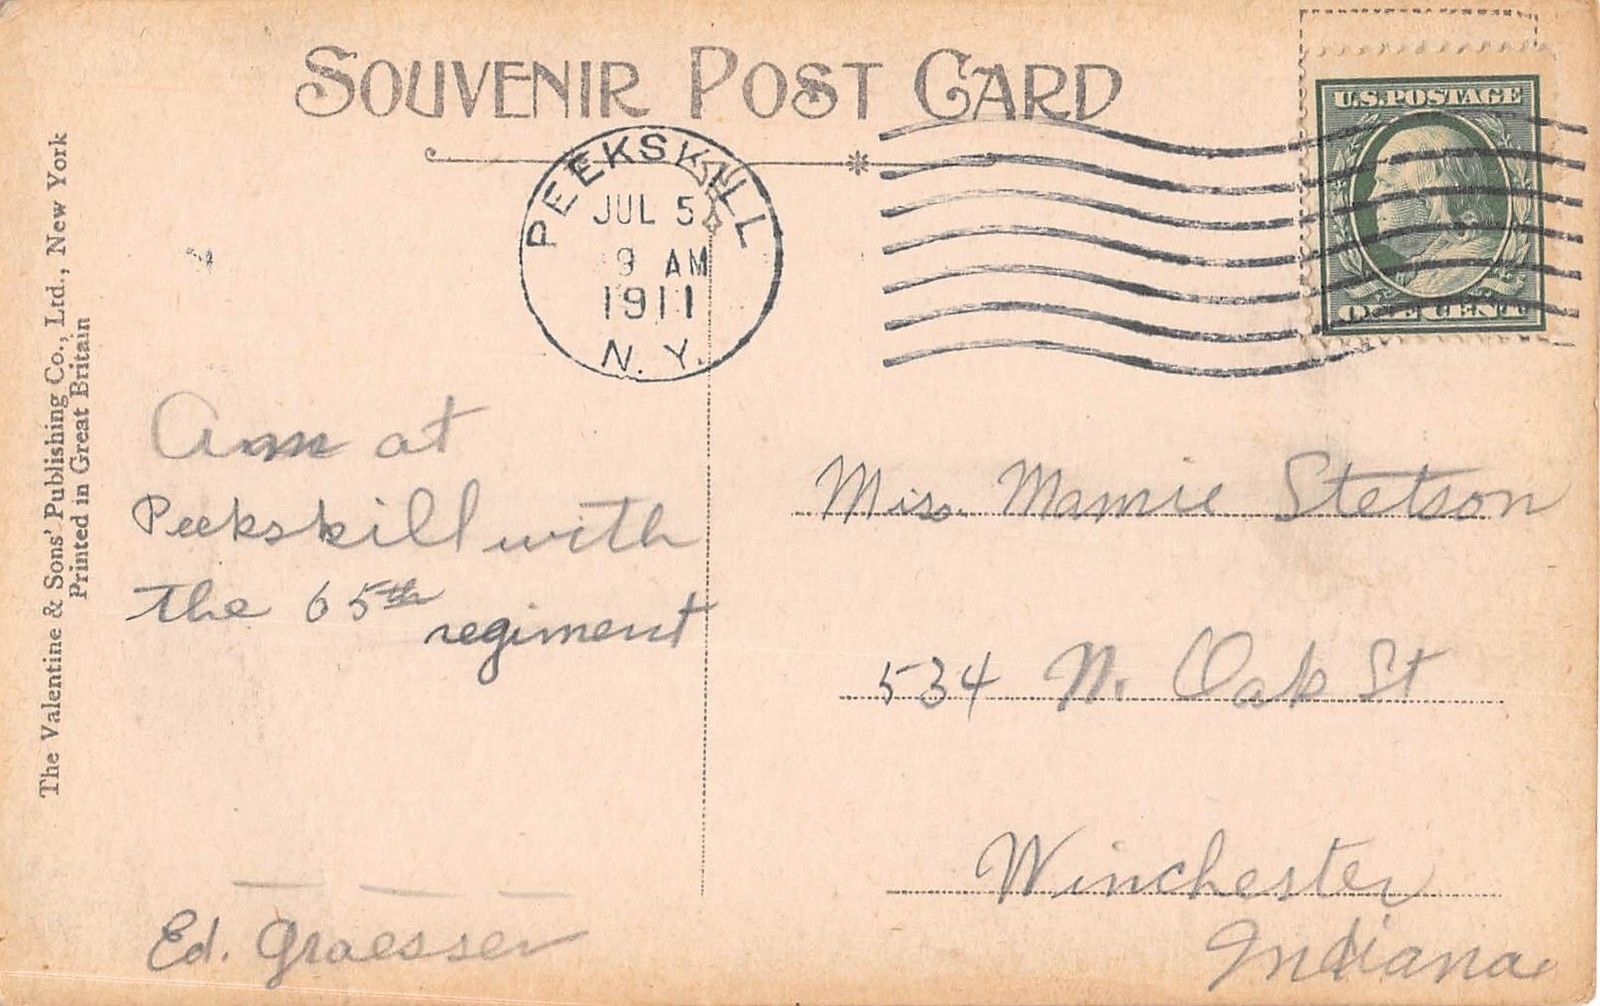 SOUVENIR POST CARD
U.S. POSTAGE
ONE CENT
PEEKSKILL
JUL 5
9 AM
1911
N. Y.
The Valentine & Sons' Publishing Co., Ltd., New York
Printed in Great Britain
Am at
Peekskill with
the 65th
regiment
Ed. Graesser
Miss. Mamie Stetson
534 N. Oak St
Winchester
Indiana